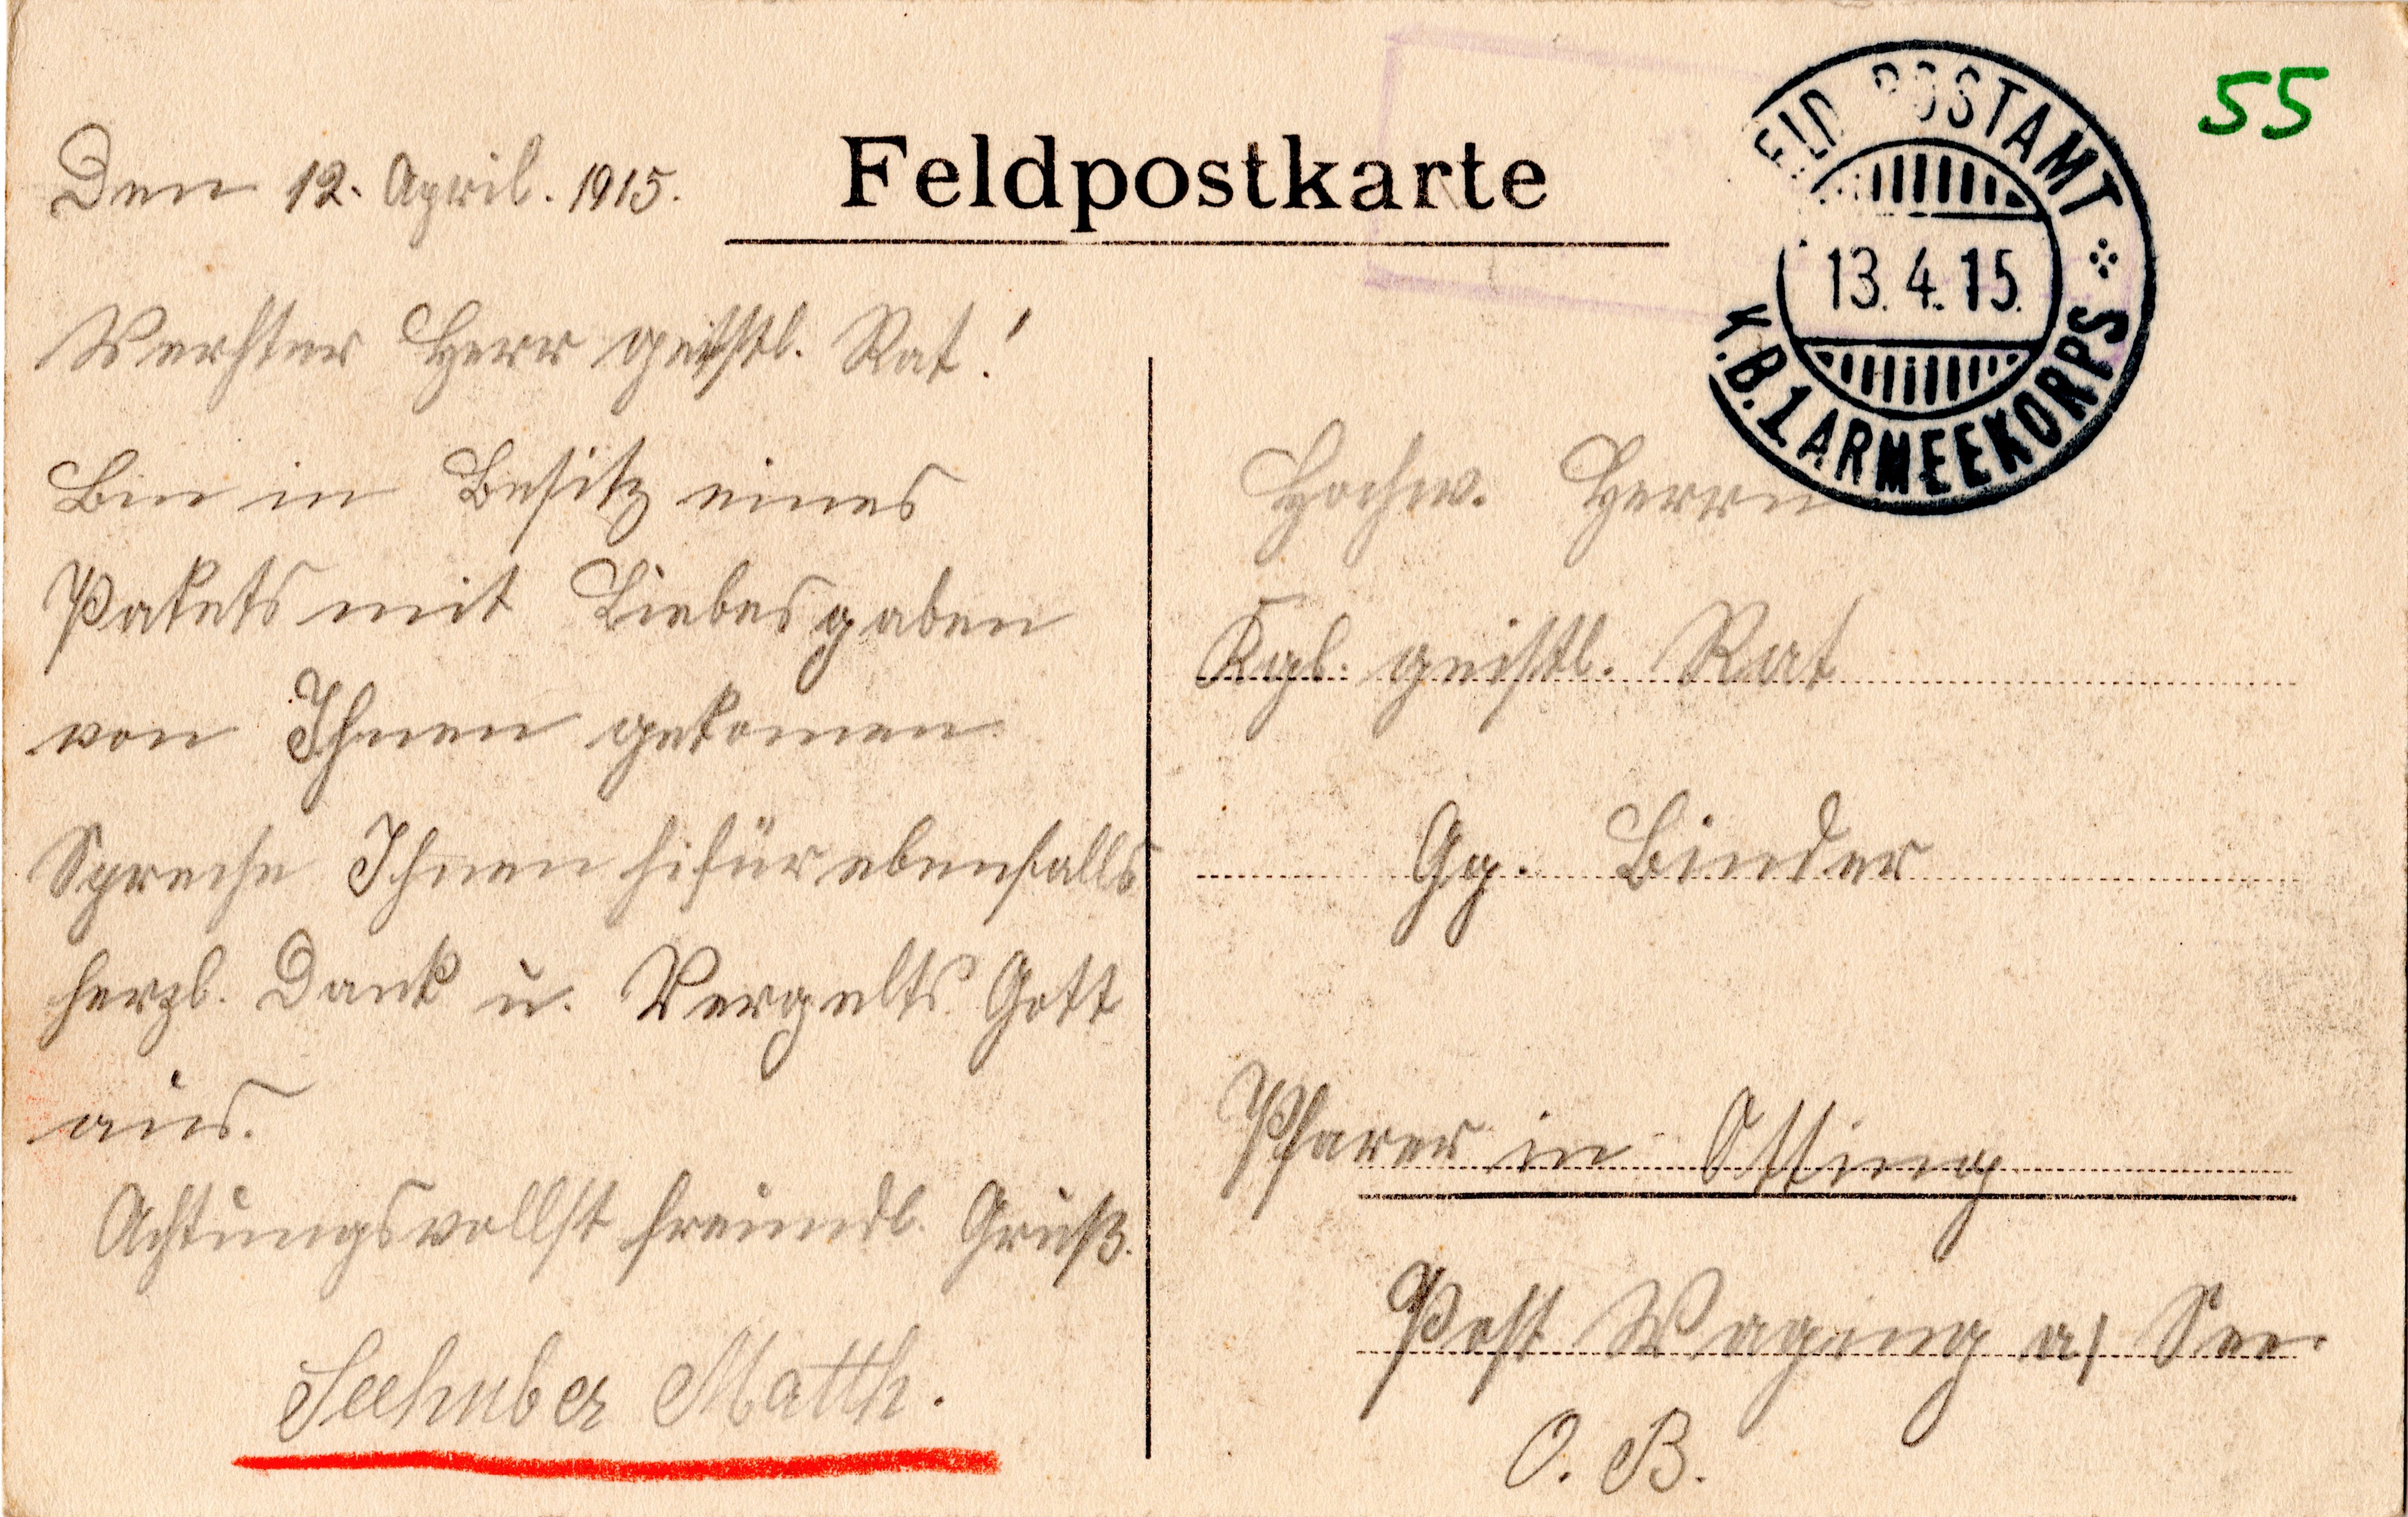 55
Feldpostkarte
FELDPOSTAMT
13.4.15.
K.B.1 ARMEEKORPS
Den 12. April. 1915.
Werther Herr geistl. Rat!
Bin in Besitz eines
Pakets mit Liebesgaben
von Ihnen gekomen
Spreche Ihnen hifür ebenfalls
herzl. Dank u. Vergelts Gott
aus.
Achtungsvollst freundl. Gruß.
Seehuber Matth.
Hochw. Herrn
Kgl. geistl. Rat
Gg. Binder
Pfarer in Otting
Post Waging a/ See.
O. B.